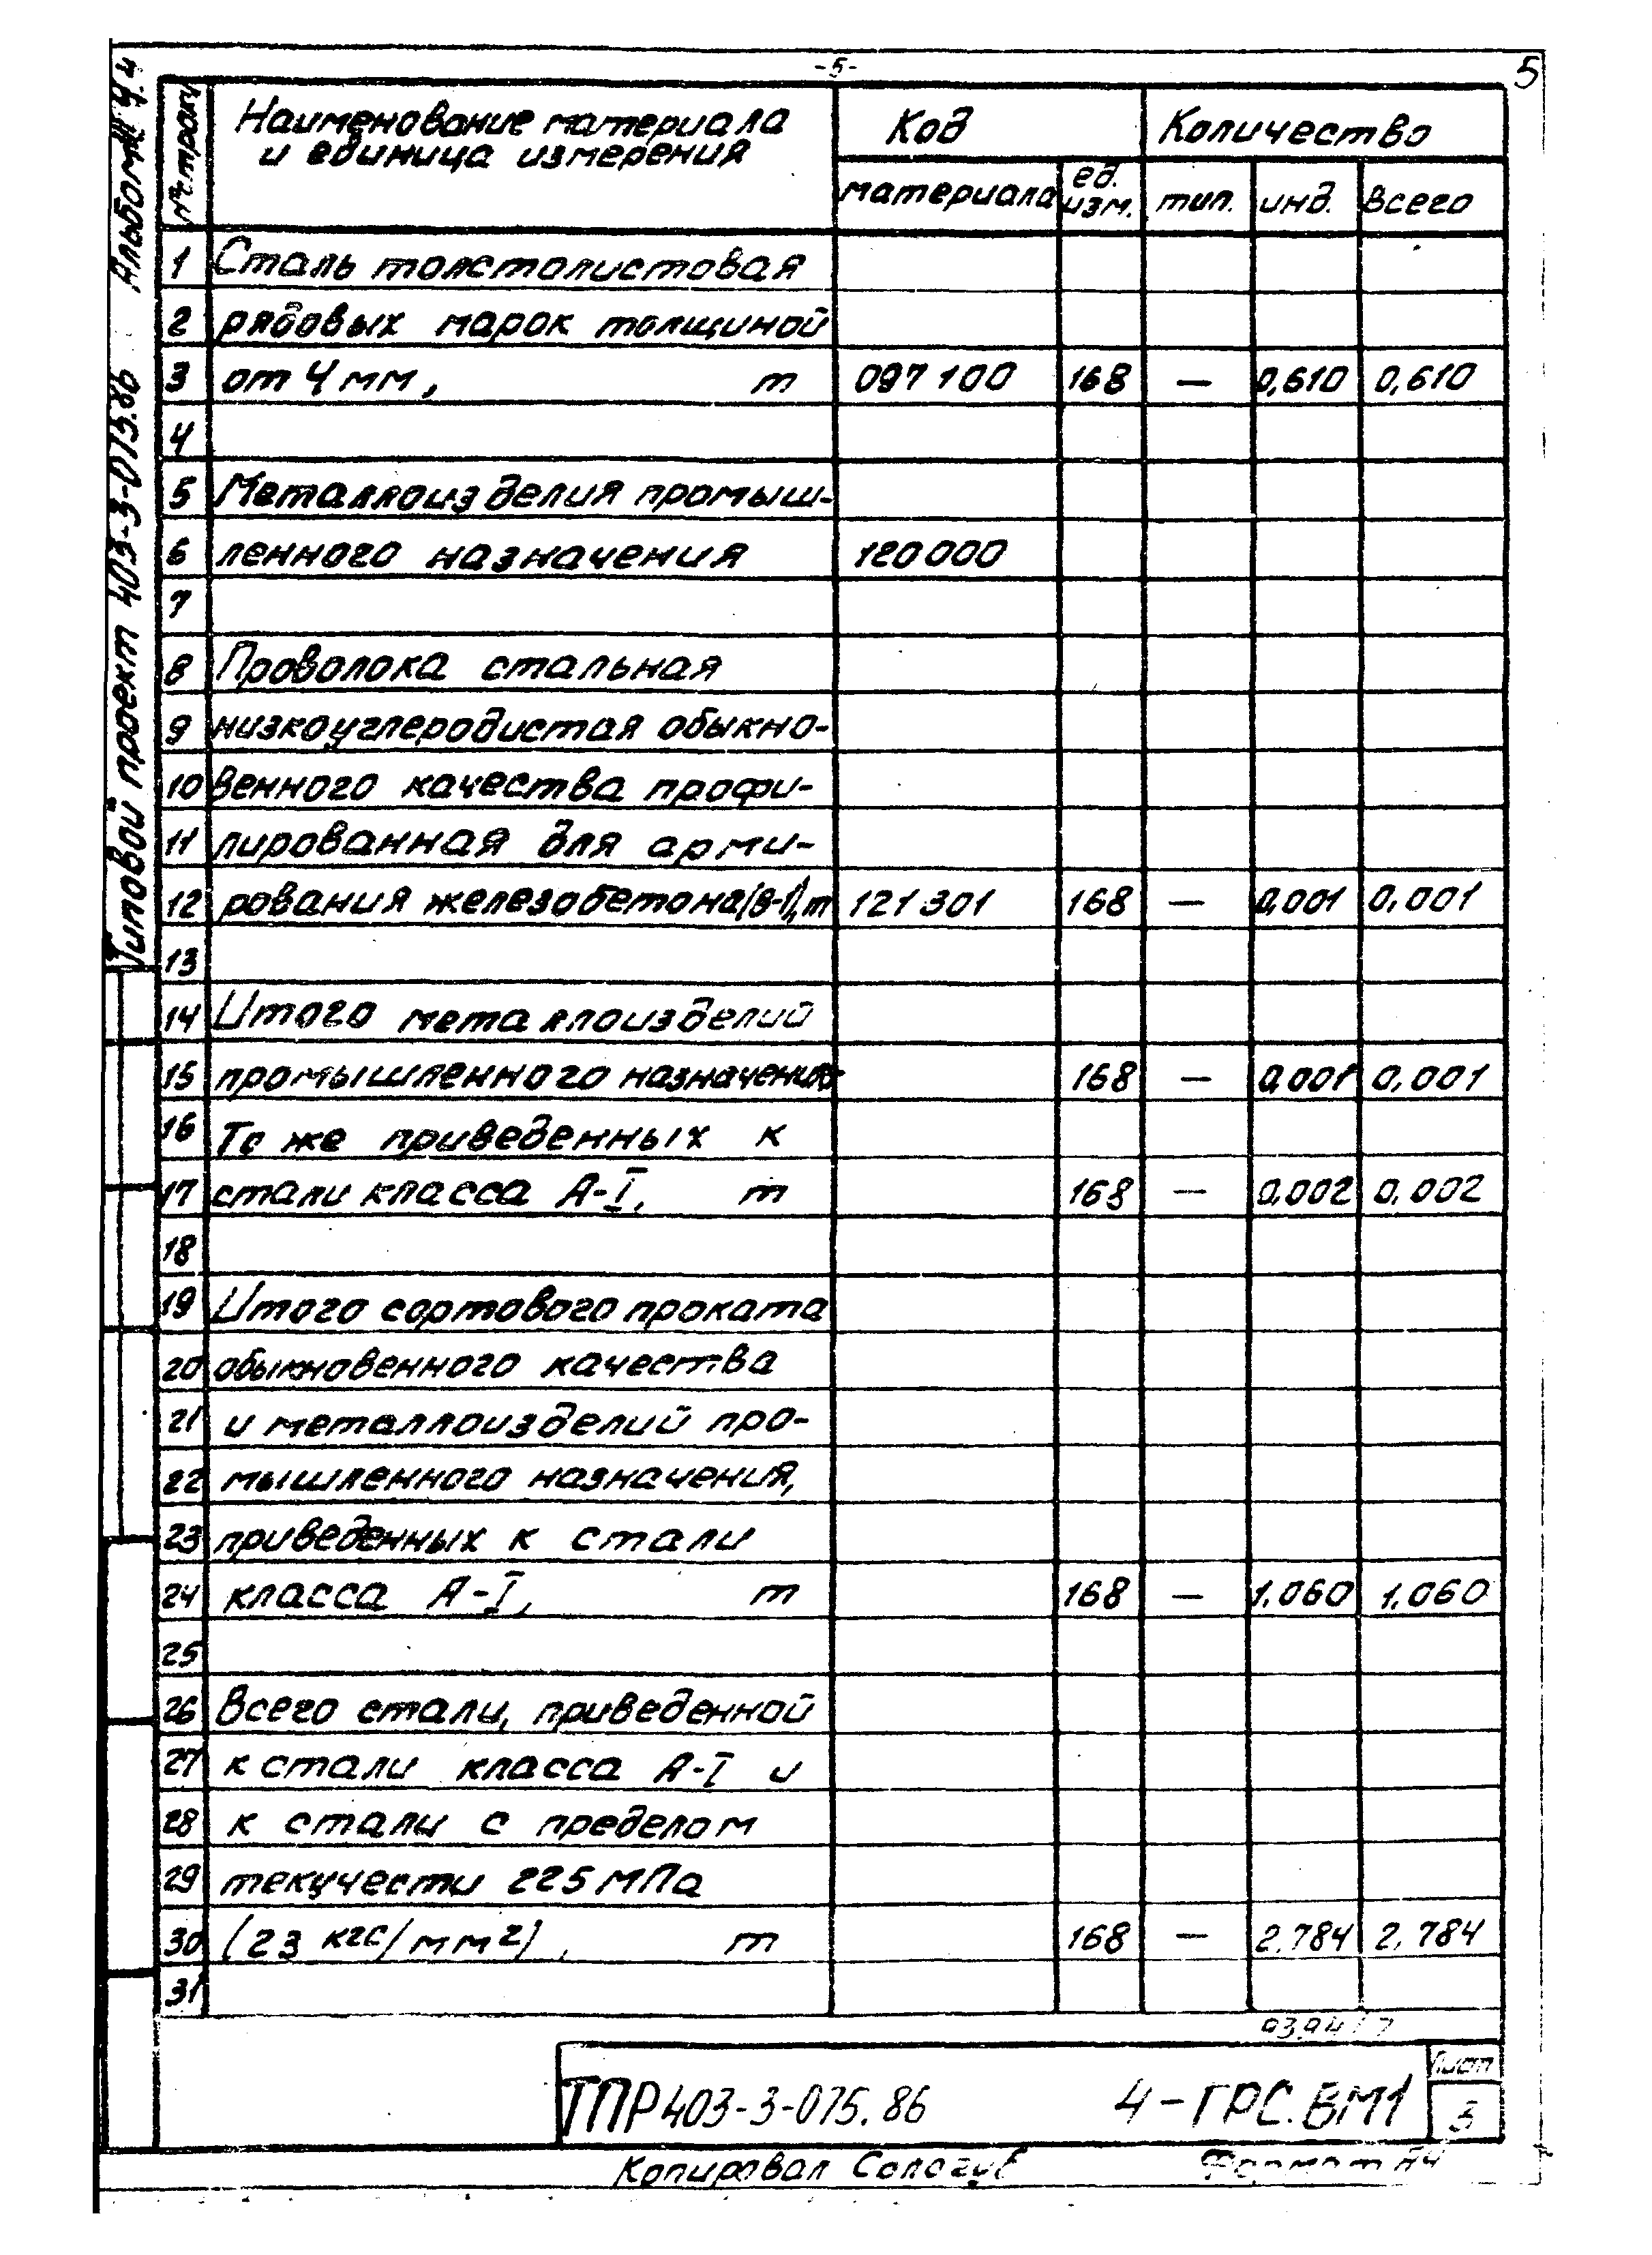 -5-
5
Альбом
Типовой проект 403-3-075.86
№ строки
Наименование материала
и единица измерения
Код
Количество
материала
ед.
изм.
тип.
инд.
всего
1 Сталь толстолистовая
2 рядовых марок толщиной
3 от 4 мм, т 097100 168 — 0,610 0,610
4
5 Металлоизделия промыш-
6 ленного назначения 120000
7
8 Проволока стальная
9 низкоуглеродистая обыкно-
10 венного качества профи-
11 лированная для арми-
12 рования железобетона (В-I), т 121301 168 — 0,001 0,001
13
14 Итого металлоизделий
15 промышленного назначения 168 — 0,001 0,001
16 То же приведенных к
17 стали класса А-I, т 168 — 0,002 0,002
18
19 Итого сортового проката
20 обыкновенного качества
21 и металлоизделий про-
22 мышленного назначения,
23 приведенных к стали
24 класса А-I, т 168 — 1.060 1.060
25
26 Всего стали, приведенной
27 к стали класса А-I и
28 к стали с пределом
29 текучести 225 МПа
30 (23 кгс/мм2), т 168 — 2.784 2.784
31
ТПР 403-3-075.86
4-ГРС.ВМ1
Лист
Копировал Сологуб
Формат А4